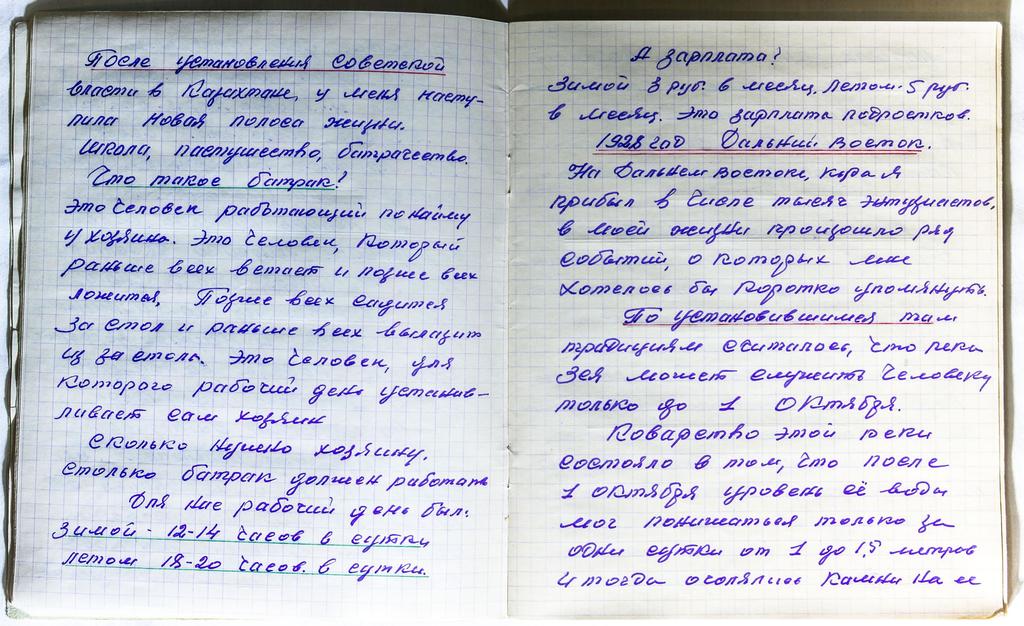 После установления советской
власти в Казахтане, у меня насту-
пила новая полоса жизни.
Школа, пастушество, батрачество.
Что такое батрак?
Это человек работающий по найму
у хозяина. Это человек, который
раньше всех встает и позже всех
ложится, Позже всех садится
за стол и раньше всех вылазит
из за стола. Это человек, для
которого рабочий день устанав-
ливает сам хозяин
Сколько нужно хозяину,
столько батрак должен работать
Для нас рабочий день был:
Зимой - 12-14 часов в сутки
летом 18-20 часов. в сутки.
А зарплата?
Зимой 3 руб. в месяц. Летом - 5 руб.
в месяц. Это зарплата подростков.
1928 год Дальний восток.
На Дальнем востоке, куда я
прибыл в числе тысяч энтузиастов,
в моей жизни произошло ряд
событий, о которых мне
хотелось бы коротко упомянуть.
По установившимся там
традициям считалось, что река
Зея может служить человеку
только до 1 октября.
Коварство этой реки
состояло в том, что после
1 октября уровень её воды
мог понижаться только за
одни сутки от 1 до 1,5 метров
и тогда оголялись камни на ее